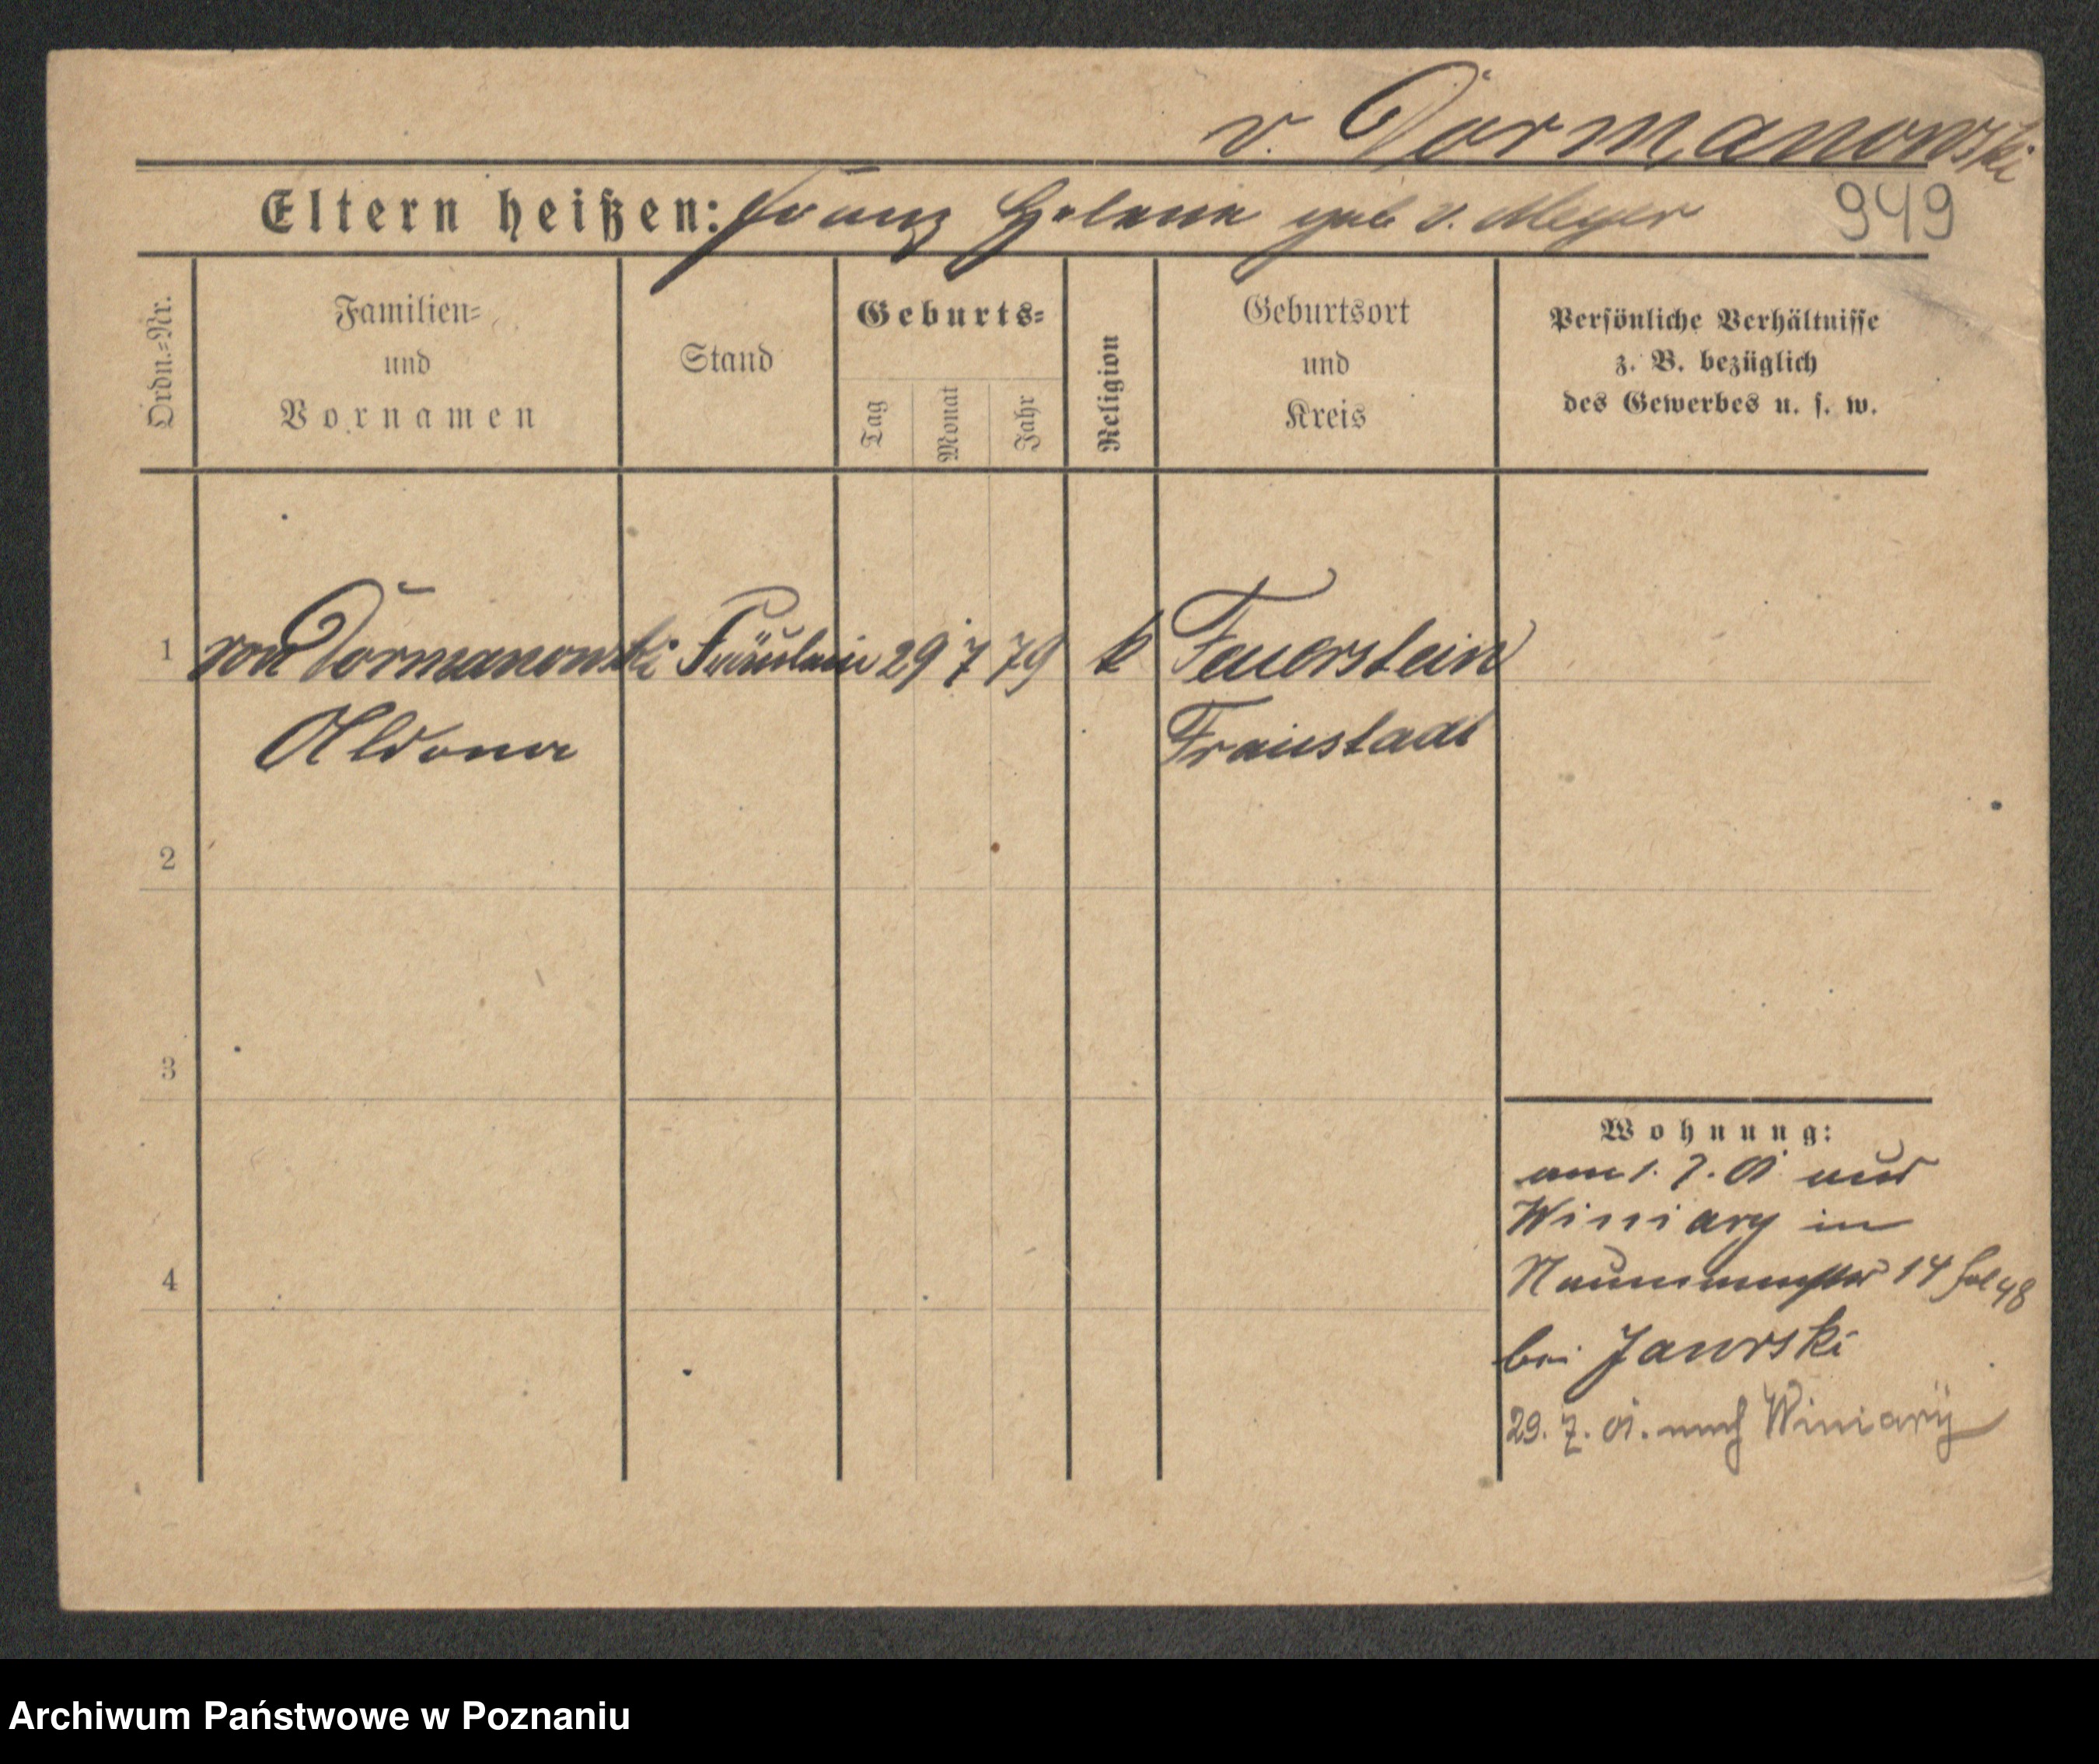 v. Dormanowski
Eltern heißen: Franz Helena geb v. Meyer 949
Ordn.=Nr.
Familien=
und
Vornamen
Stand
Geburts=
Tag
Monat
Jahr
Religion
Geburtsort
und
Kreis
Persönliche Verhältnisse
z. B. bezüglich
des Gewerbes u. s. w.
1 von Dormanowski Fräulein 29 7 79 k Feuerstein
Aldona Fraustadt
2
3
4
Wohnung:
am 1. 7. 01 aus
Winiary in
14 fol 48
bei Jaworski
29. 7. 01. nach Winiary
Archiwum Państwowe w Poznaniu